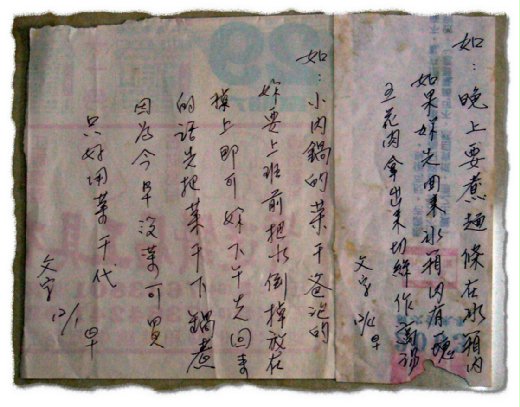 如：晚上要煮麵條在冰箱內
如果妳先回來冰箱內有塊
五花肉拿出來切絲作高湯
早
如：小內鍋的菜干爸泡的
妳要上班前把水倒掉放在
棹上即可妳下午先回來
的話先把菜干下鍋煮
因為今早沒菜可買
只好用菜干代
12/1 早